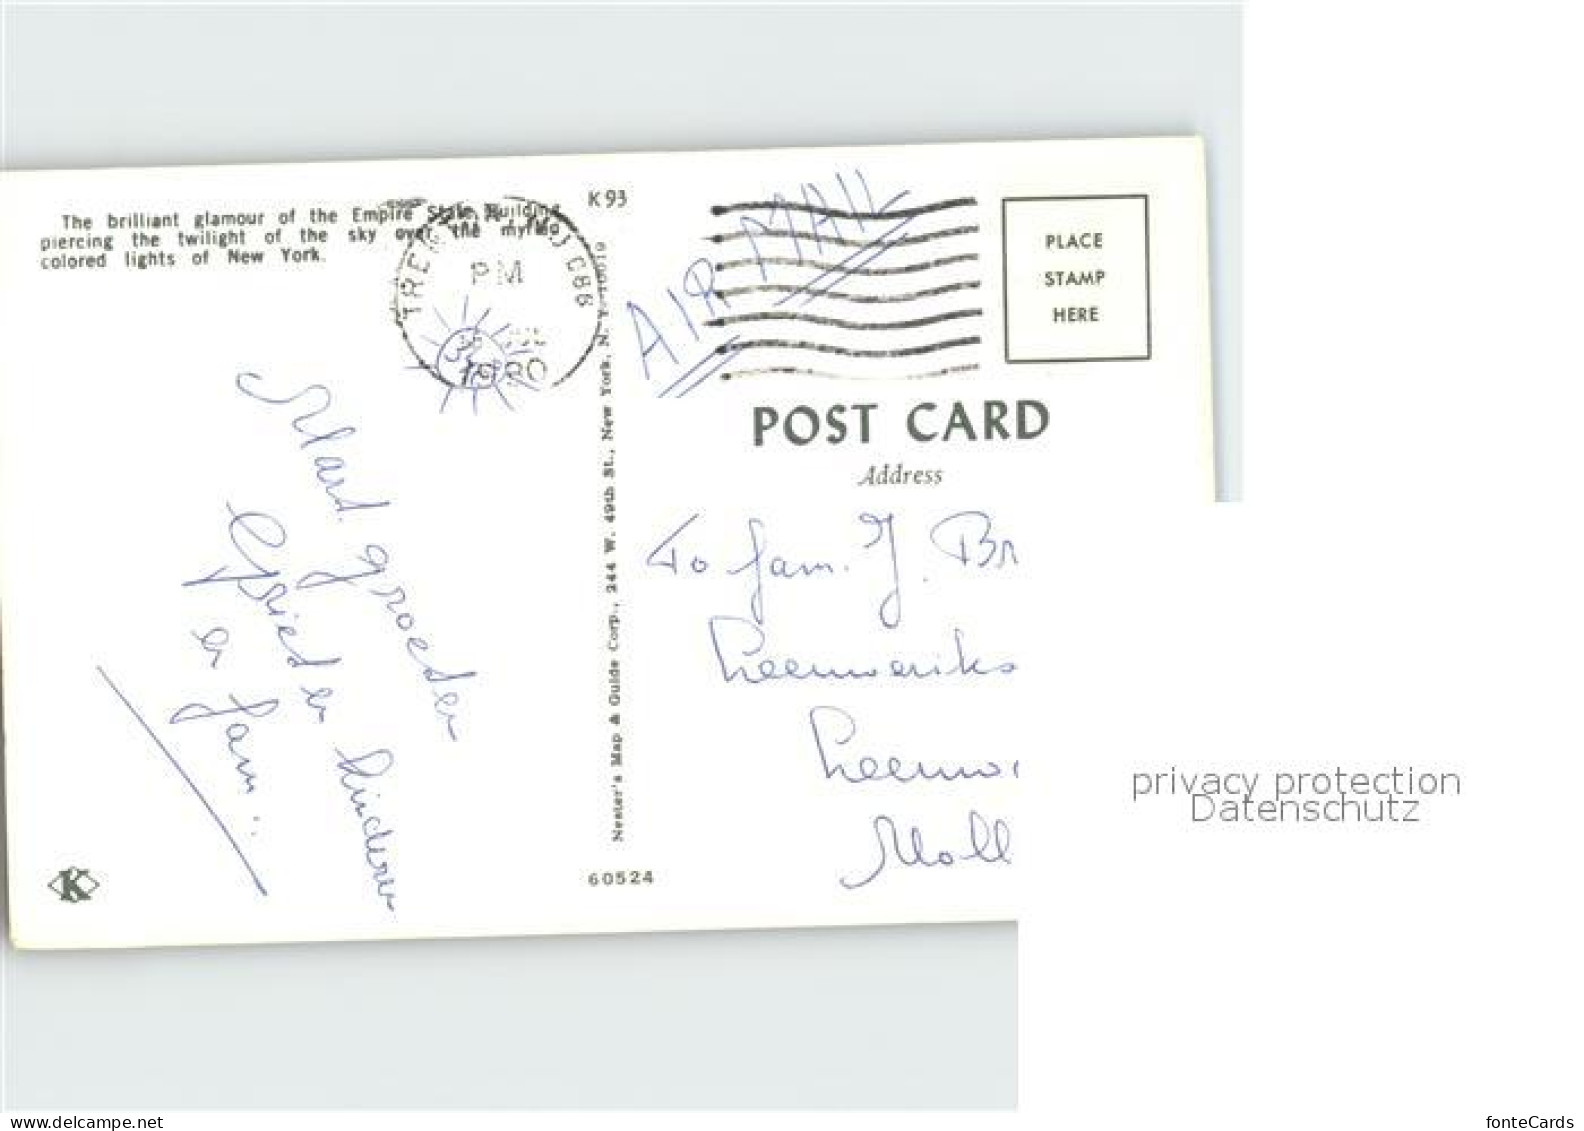 The brilliant glamour of the Empire State Building
piercing the twilight of the sky over the myriad
colored lights of New York.
K 93
PM
1980
AIR MAIL
PLACE
STAMP
HERE
POST CARD
Address
To fam. J. Br
Leeuweriks
Leeuwa
Holl
Hard. groeten
en kinderen
en fam.
Nester's Map & Guide Corp., 244 W. 49th St., New York, N. Y. 10019
K
60524
privacy protection
Datenschutz
www.delcampe.net
fonteCards